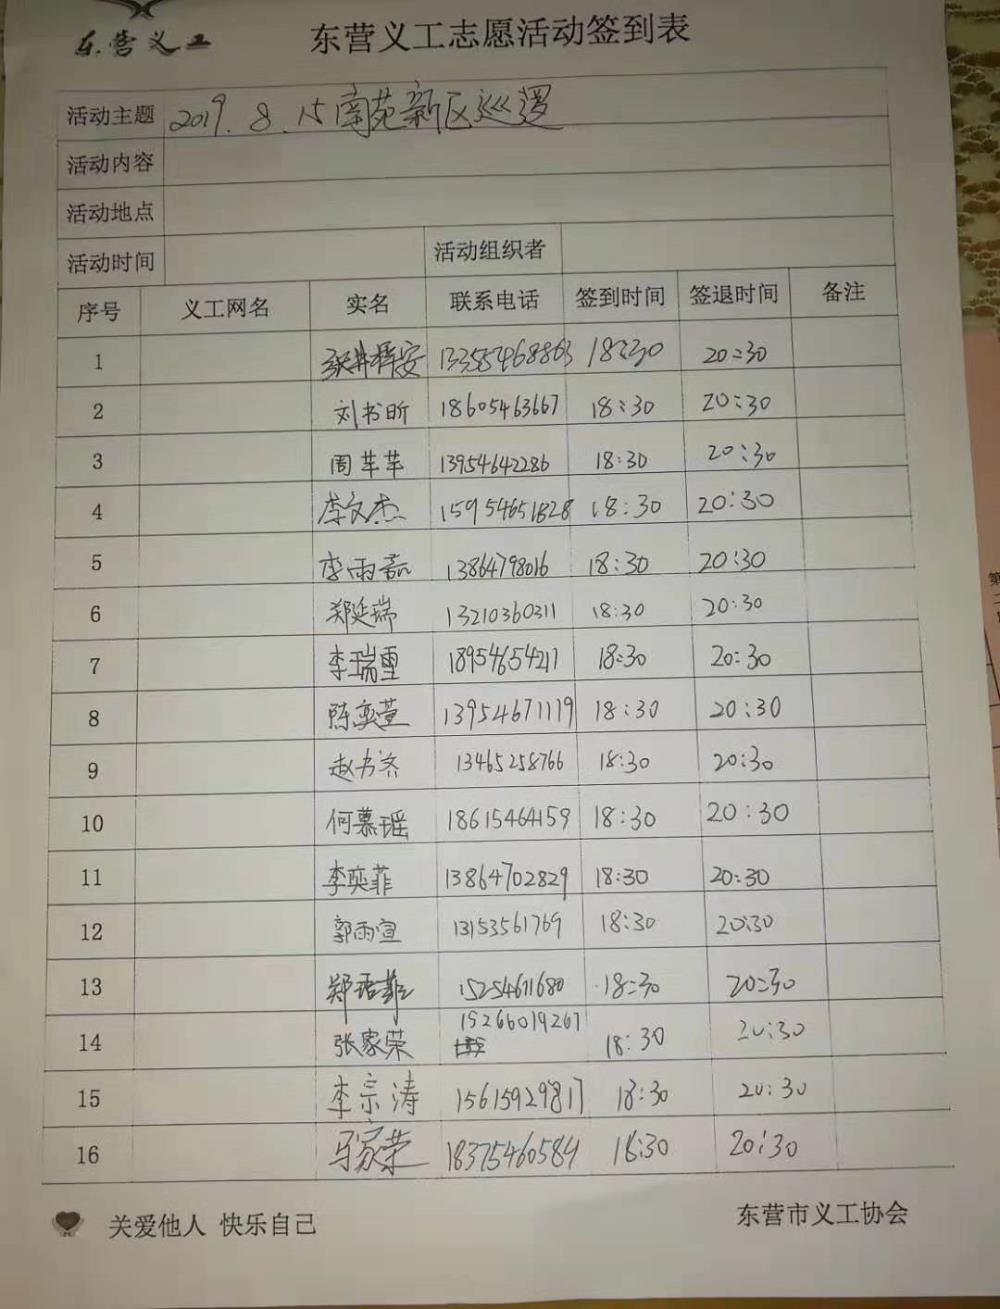 东营义工
东营义工志愿活动签到表
活动主题 2019.8.15南苑新区巡逻
活动内容
活动地点
活动时间 活动组织者
序号 义工网名 实名 联系电话 签到时间 签退时间 备注
1 13355468863 18:30 20:30
2 刘书昕 18605463667 18:30 20:30
3 周芊芊 13954642286 18:30 20:30
4 李文杰 15954651828 18:30 20:30
5 李雨嘉 13864798016 18:30 20:30
6 郑延瑞 13210360311 18:30 20:30
7 李瑞雪 18954654217 18:30 20:30
8 陈奕萱 13954671119 18:30 20:30
9 赵书齐 13465258766 18:30 20:30
10 何慕瑶 18615464159 18:30 20:30
11 李奕菲 13864702829 18:30 20:30
12 郭雨宣 13153561769 18:30 20:30
13 郑 15254611680 18:30 20:30
14 张家荣 15266019267 18:30 20:30
15 李宗涛 15615929817 18:30 20:30
16 马家荣 18375460584 18:30 20:30
关爱他人 快乐自己
东营市义工协会